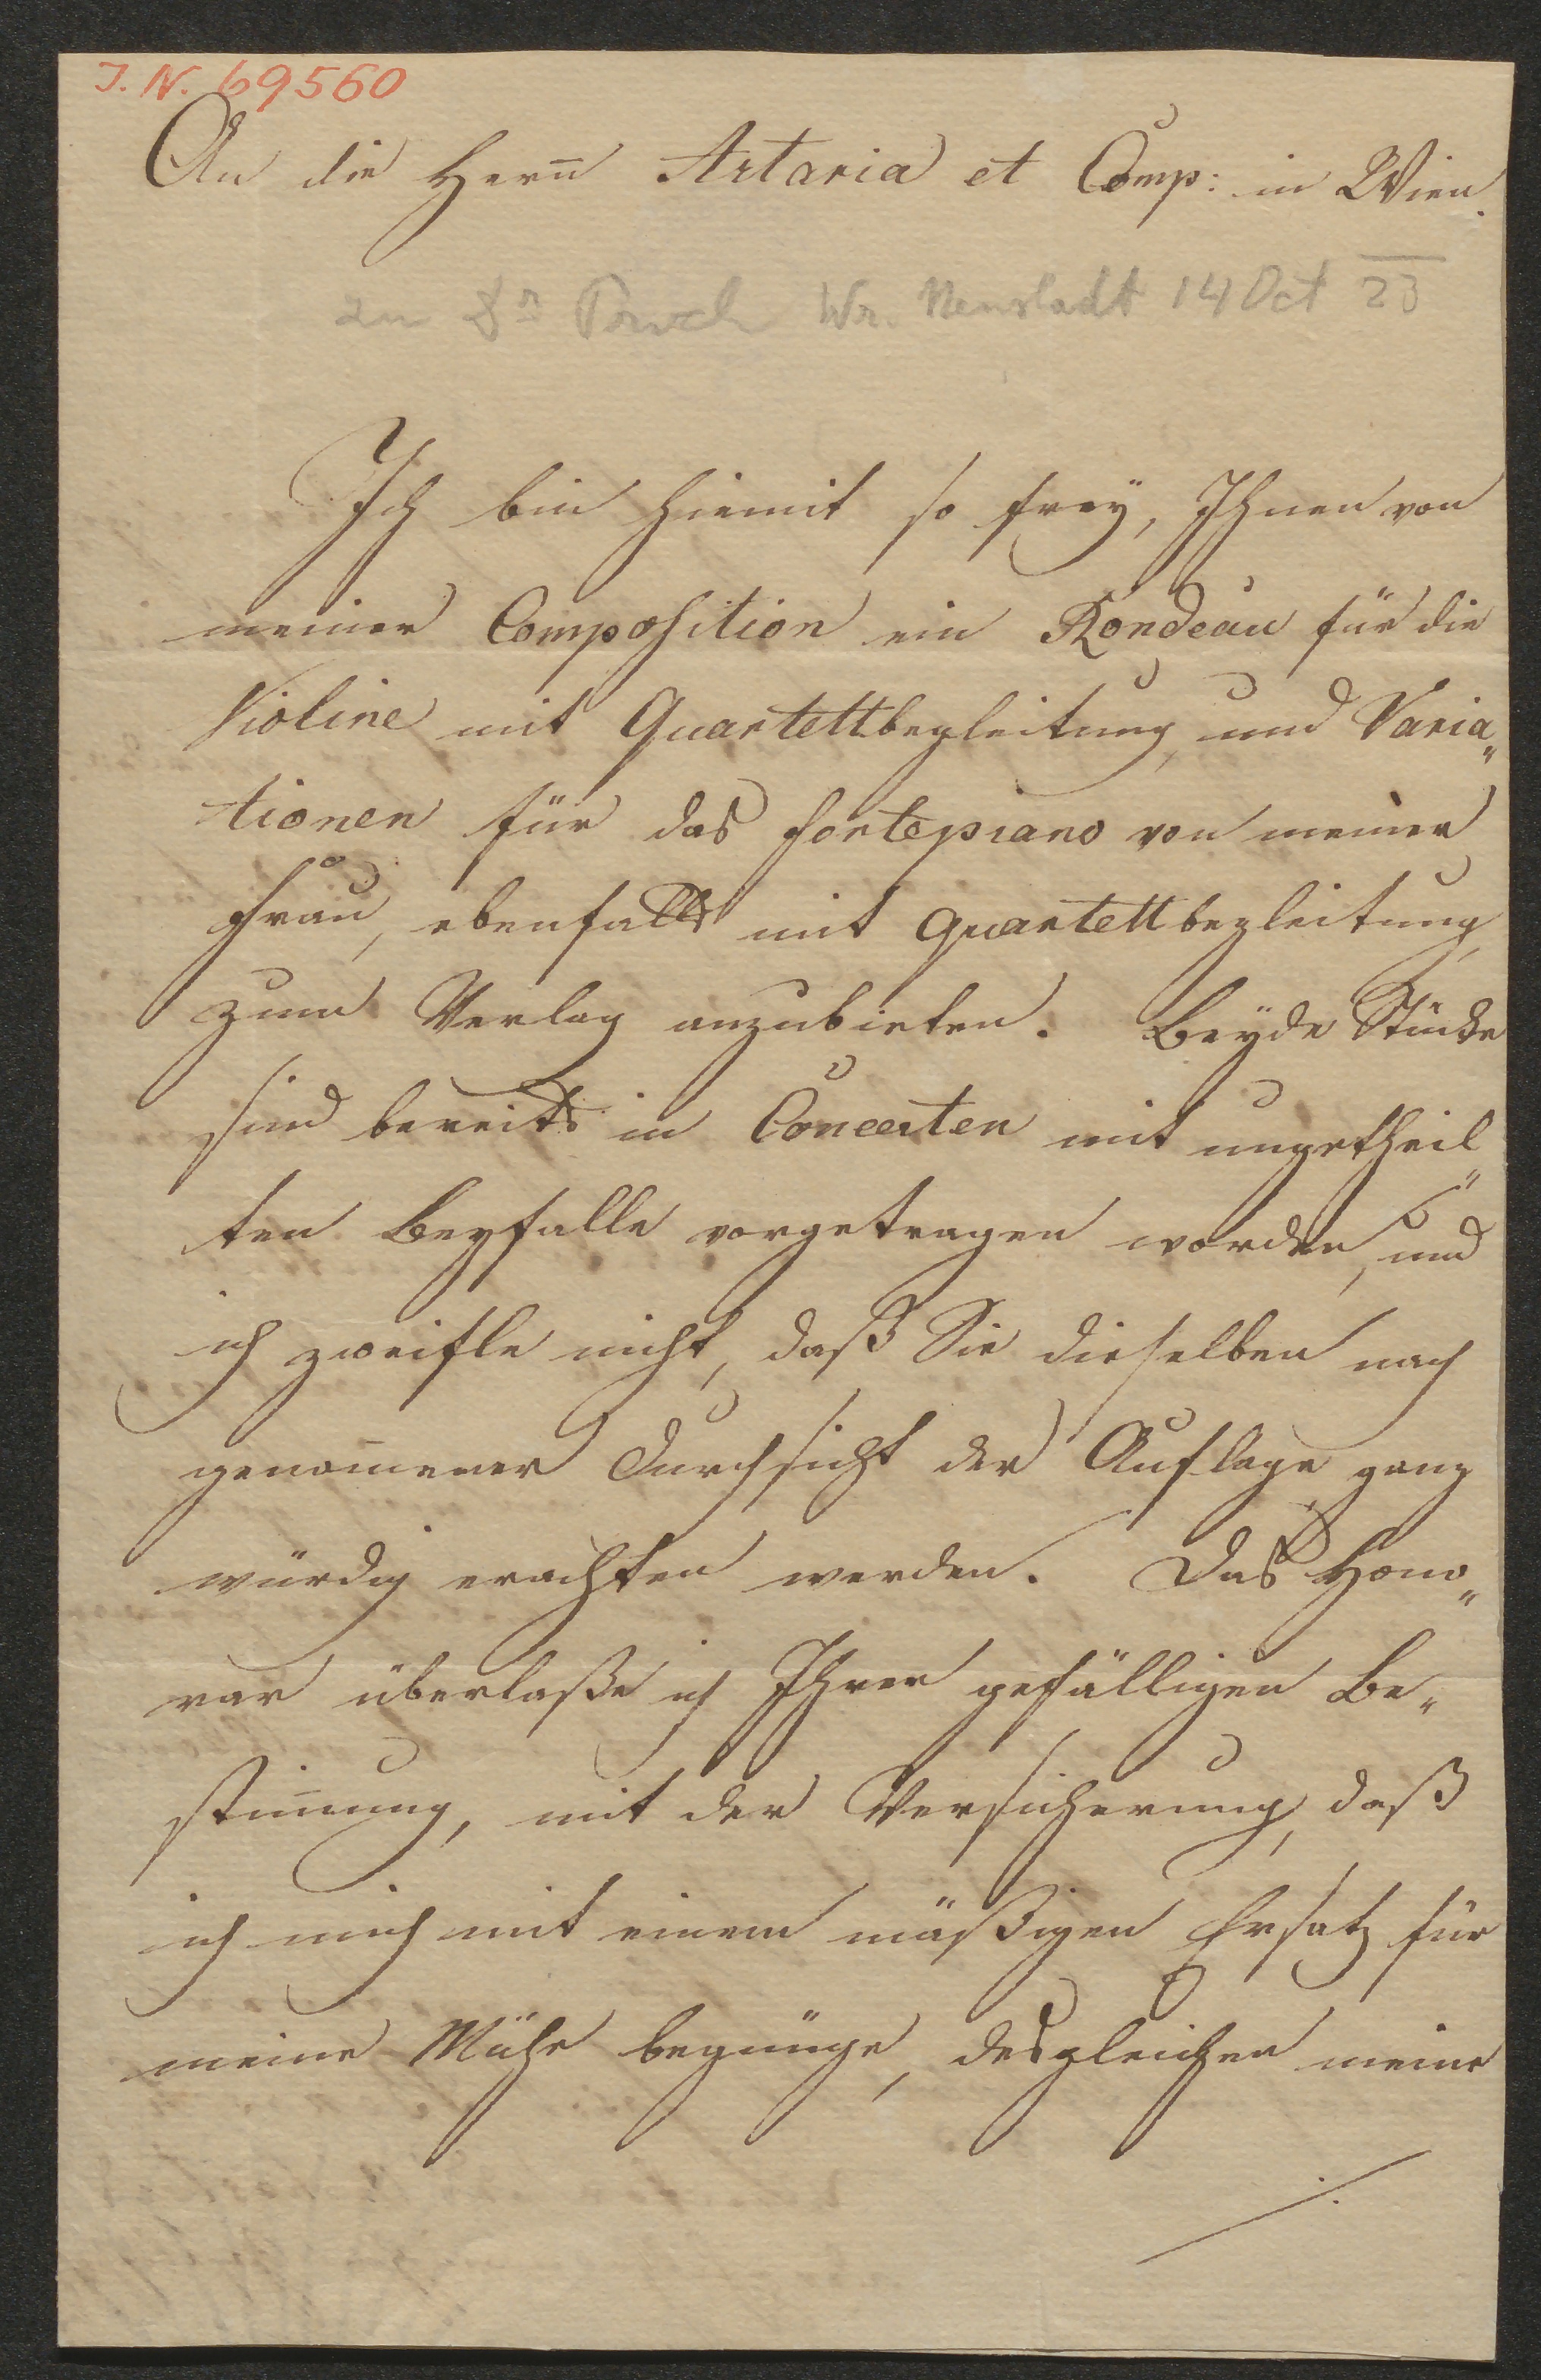 I. N. 69560
An die Hern̄ Artaria et Comp: in Wien.
Wr. Neustadt 14 Oct 23
Ich bin hiemit so frey, Ihnen von
meiner Composition ein Rondeau für die
Violine mit Quartettbegleitung, und Varia„
tionen für das Fortepiano von meiner
Frau, ebenfalls mit Quartettbegleitung,
zum Verlag anzubieten. Beyde Stücke
sind bereits in Concerten mit ungetheil„
ten Beyfalle vorgetragen worden, und
ich zweifle nicht, daß Sie dieselben nach
genom̄ener Durchsicht der Auflage ganz
würdig erachten werden. Das Hono„
rar überlaße ich Ihrer gefälligen Be„
stim̄ung, mit der Versicherung, daß
ich mich mit einem mäßigen Ersatz für
meine Mühe begnüge, desgleichen meine
./.